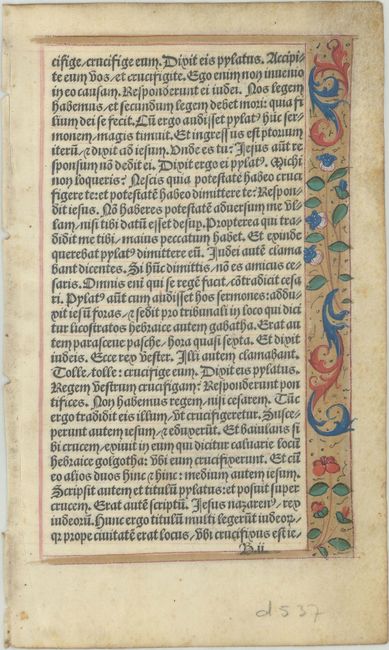 cifige/crucifige eum. Dixit eis pylatus. Accipi-
te eum vos/et crucifigite. Ego enim non inuenio
in eo causam. Responderunt ei iudei. Nos legem
habemus/et secundum legem debet mori: quia fi
lium dei se fecit. Cū ergo audisset pylatꝰ hūc ser-
monem/magis timuit. Et ingressus est p̄torium
iterū/⁊ dixit ad iesum. Vnde es tu: Jesus aūt re
sponsum nō dedit ei. Dixit ergo ei pylatꝰ. Michi
non loqueris: Nescis quia potestatē habeo cruci
figere te: et potestatē habeo dimittere te: Respon-
dit iesus. Nō haberes potestatē aduersum me vl-
lam/nisi tibi datū esset desuꝑ. Propterea qui tra-
didit me tibi/maius peccatum habet. Et exinde
querebat pylatꝰ dimittere eū. Judei autē clama
bant dicentes. Si hūc dimittis/nō es amicus ce-
saris. Omnis eni qui se regē facit/cōtradicit cesa
ri. Pylatꝰ aūt cum audisset hos sermones: addu-
xit iesū foras/⁊ sedit pro tribunali in loco qui dici
tur licostratos hebraice autem gabatha. Erat au
tem parasceue pasche/hora quasi sexta. Et dixit
iudeis. Ecce rex vester. Illi autem clamabant.
Tolle: tolle: crucifige eum. Dixit eis pylatus.
Regem vestrum crucifigam: Responderunt pon
tifices. Non habemus regem/nisi cesarem. Tūc
ergo tradidit eis illum/vt crucifigeretur. Susce-
perunt autem iesum/⁊ eduxerūt. Et baiulans si
bi crucem/exiuit in eum qui dicitur caluarie locū
hebraice golgotha: vbi eum crucifixerunt. Et cū
eo alios duos hinc ⁊ hinc: medium autem iesum.
Scripsit autem et titulū pylatus: et posuit super
crucem. Erat autē scriptū. Jesus nazarenꝰ/rex
iudeorū. Hunc ergo titulū multi legerūt iudeoꝝ/
qꝛ prope ciuitatē erat locus/vbi crucifixus est ie-
B.ii.
d 537